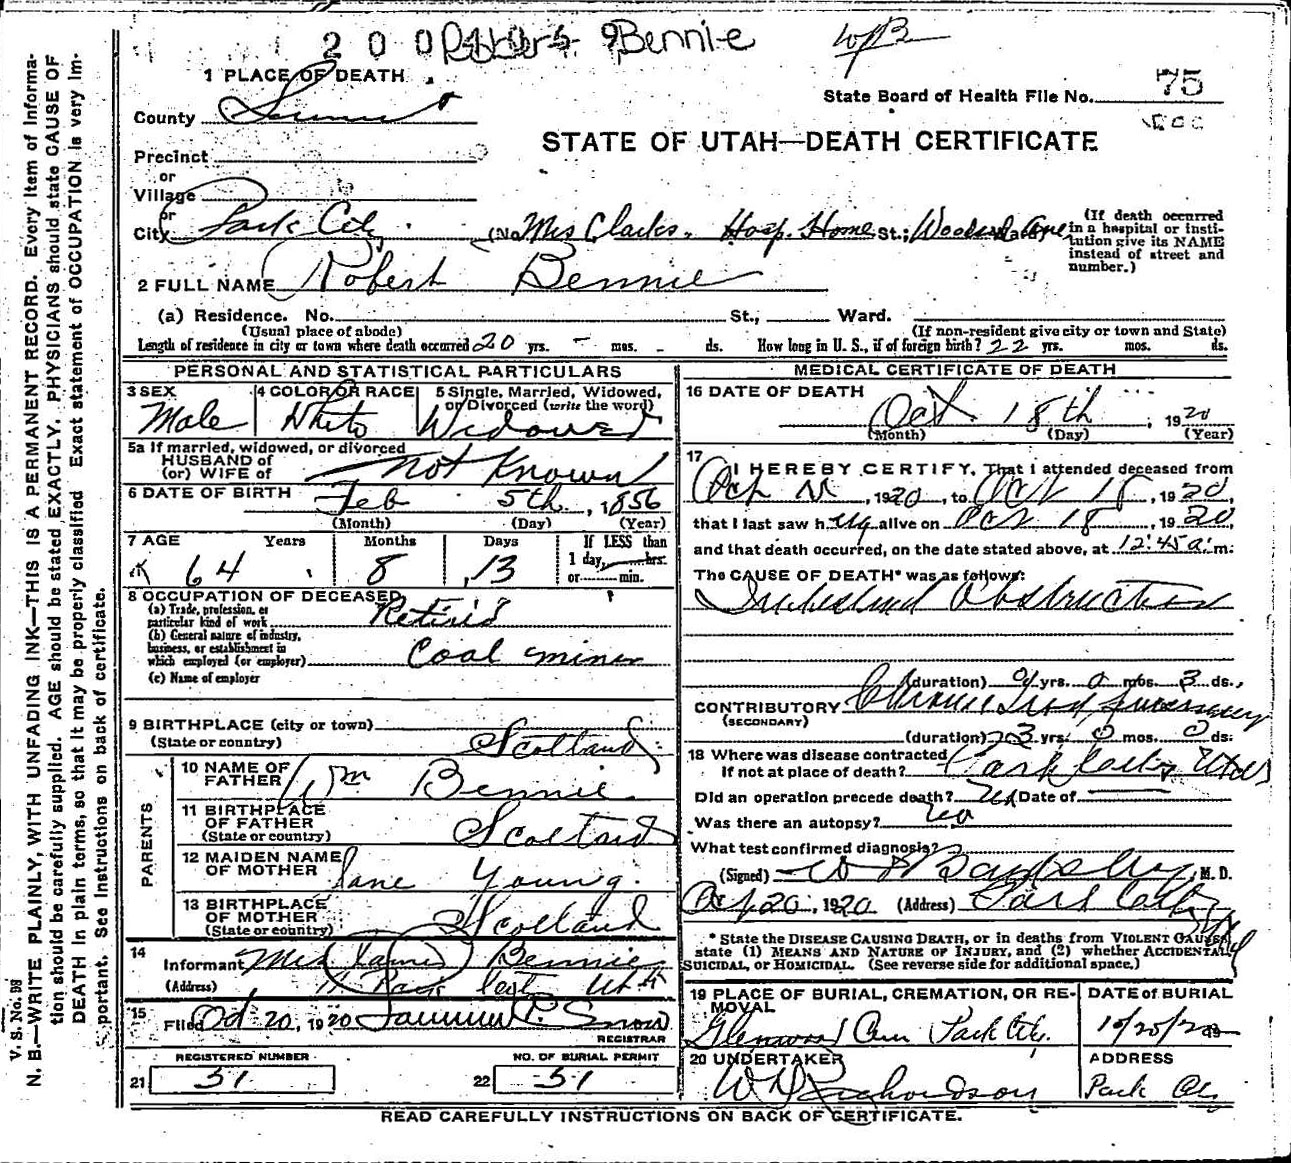 Bennie
1 PLACE OF DEATH
75
State Board of Health File No.
County Summit
STATE OF UTAH—DEATH CERTIFICATE
Precinct
or
Village
or
City Park City (No Mrs Clarks. Hosp. Home St.; Ward)
(If death occurred in a hospital or insti-
tution give its NAME
instead of street and
number.)
2 FULL NAME Robert Bennie
(a) Residence. No. St., Ward.
(Usual place of abode) (If non-resident give city or town and State)
Length of residence in city or town where death occurred 20 yrs. - mos. - ds. How long in U. S., if of foreign birth? 22 yrs. mos. ds.
PERSONAL AND STATISTICAL PARTICULARS
3 SEX Male
4 COLOR OR RACE White
5 Single, Married, Widowed,
or Divorced (write the word)
Widowed
5a If married, widowed, or divorced
HUSBAND of
(or) WIFE of Not Known
6 DATE OF BIRTH Feb 5th, 1856
(Month) (Day) (Year)
7 AGE Years Months Days If LESS than
1 day, hrs.
or min.
64 8 13
8 OCCUPATION OF DECEASED
(a) Trade, profession, or
particular kind of work Retired
(b) General nature of industry,
business, or establishment in
which employed (or employer) Coal miner
(c) Name of employer
9 BIRTHPLACE (city or town)
(State or country) Scotland
PARENTS
10 NAME OF
FATHER Wm Bennie
11 BIRTHPLACE
OF FATHER
(State or country) Scotland
12 MAIDEN NAME
OF MOTHER Jane Young.
13 BIRTHPLACE
OF MOTHER
(State or country) Scotland
14
Informant Mrs James Bennie
(Address) Park City Utah
15
Filed Oct 20, 1920 Snow
REGISTRAR
REGISTERED NUMBER NO. OF BURIAL PERMIT
21 51 22 51
MEDICAL CERTIFICATE OF DEATH
16 DATE OF DEATH
Oct. 18th, 1920
(Month) (Day) (Year)
17
I HEREBY CERTIFY, That I attended deceased from
Oct, 1920, to Oct 18, 1920,
that I last saw h alive on Oct 18, 1920,
and that death occurred, on the date stated above, at 12:45 a. m.
The CAUSE OF DEATH* was as follows:
Intestinal Obstruction
(duration) 0 yrs. 0 mos. 3 ds.,
CONTRIBUTORY Chronic
(SECONDARY)
(duration) yrs. 0 mos. 0 ds.
18 Where was disease contracted
If not at place of death? Park City Utah
Did an operation precede death? Date of
Was there an autopsy? no
What test confirmed diagnosis?
(Signed) , M. D.
Oct 20, 1920 (Address) Park City
* State the DISEASE CAUSING DEATH, or in deaths from VIOLENT CAUSES,
state (1) MEANS AND NATURE OF INJURY, and (2) whether ACCIDENTAL,
SUICIDAL, or HOMICIDAL. (See reverse side for additional space.)
19 PLACE OF BURIAL, CREMATION, OR RE-
MOVAL
Glenwood Cem Park City.
DATE of BURIAL
10/20/20
20 UNDERTAKER
W Richardson
ADDRESS
Park City
READ CAREFULLY INSTRUCTIONS ON BACK OF CERTIFICATE.
V. S. No. 98
N. B.—WRITE PLAINLY, WITH UNFADING INK—THIS IS A PERMANENT RECORD. Every item of informa-
tion should be carefully supplied. AGE should be stated EXACTLY. PHYSICIANS should state CAUSE OF
DEATH in plain terms, so that it may be properly classified. Exact statement of OCCUPATION is very im-
portant. See instructions on back of certificate.